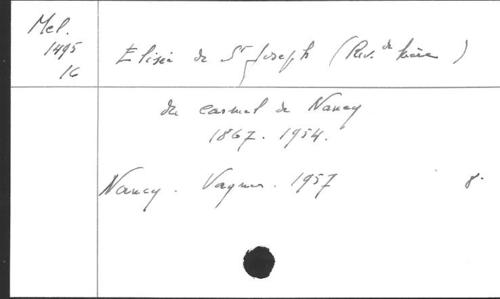 Mel.
1495
16
Elisée de St Joseph (Rev.de Mère)
du carmel de Nancy
1867. 1954.
Nancy. Vagner. 1957 8.